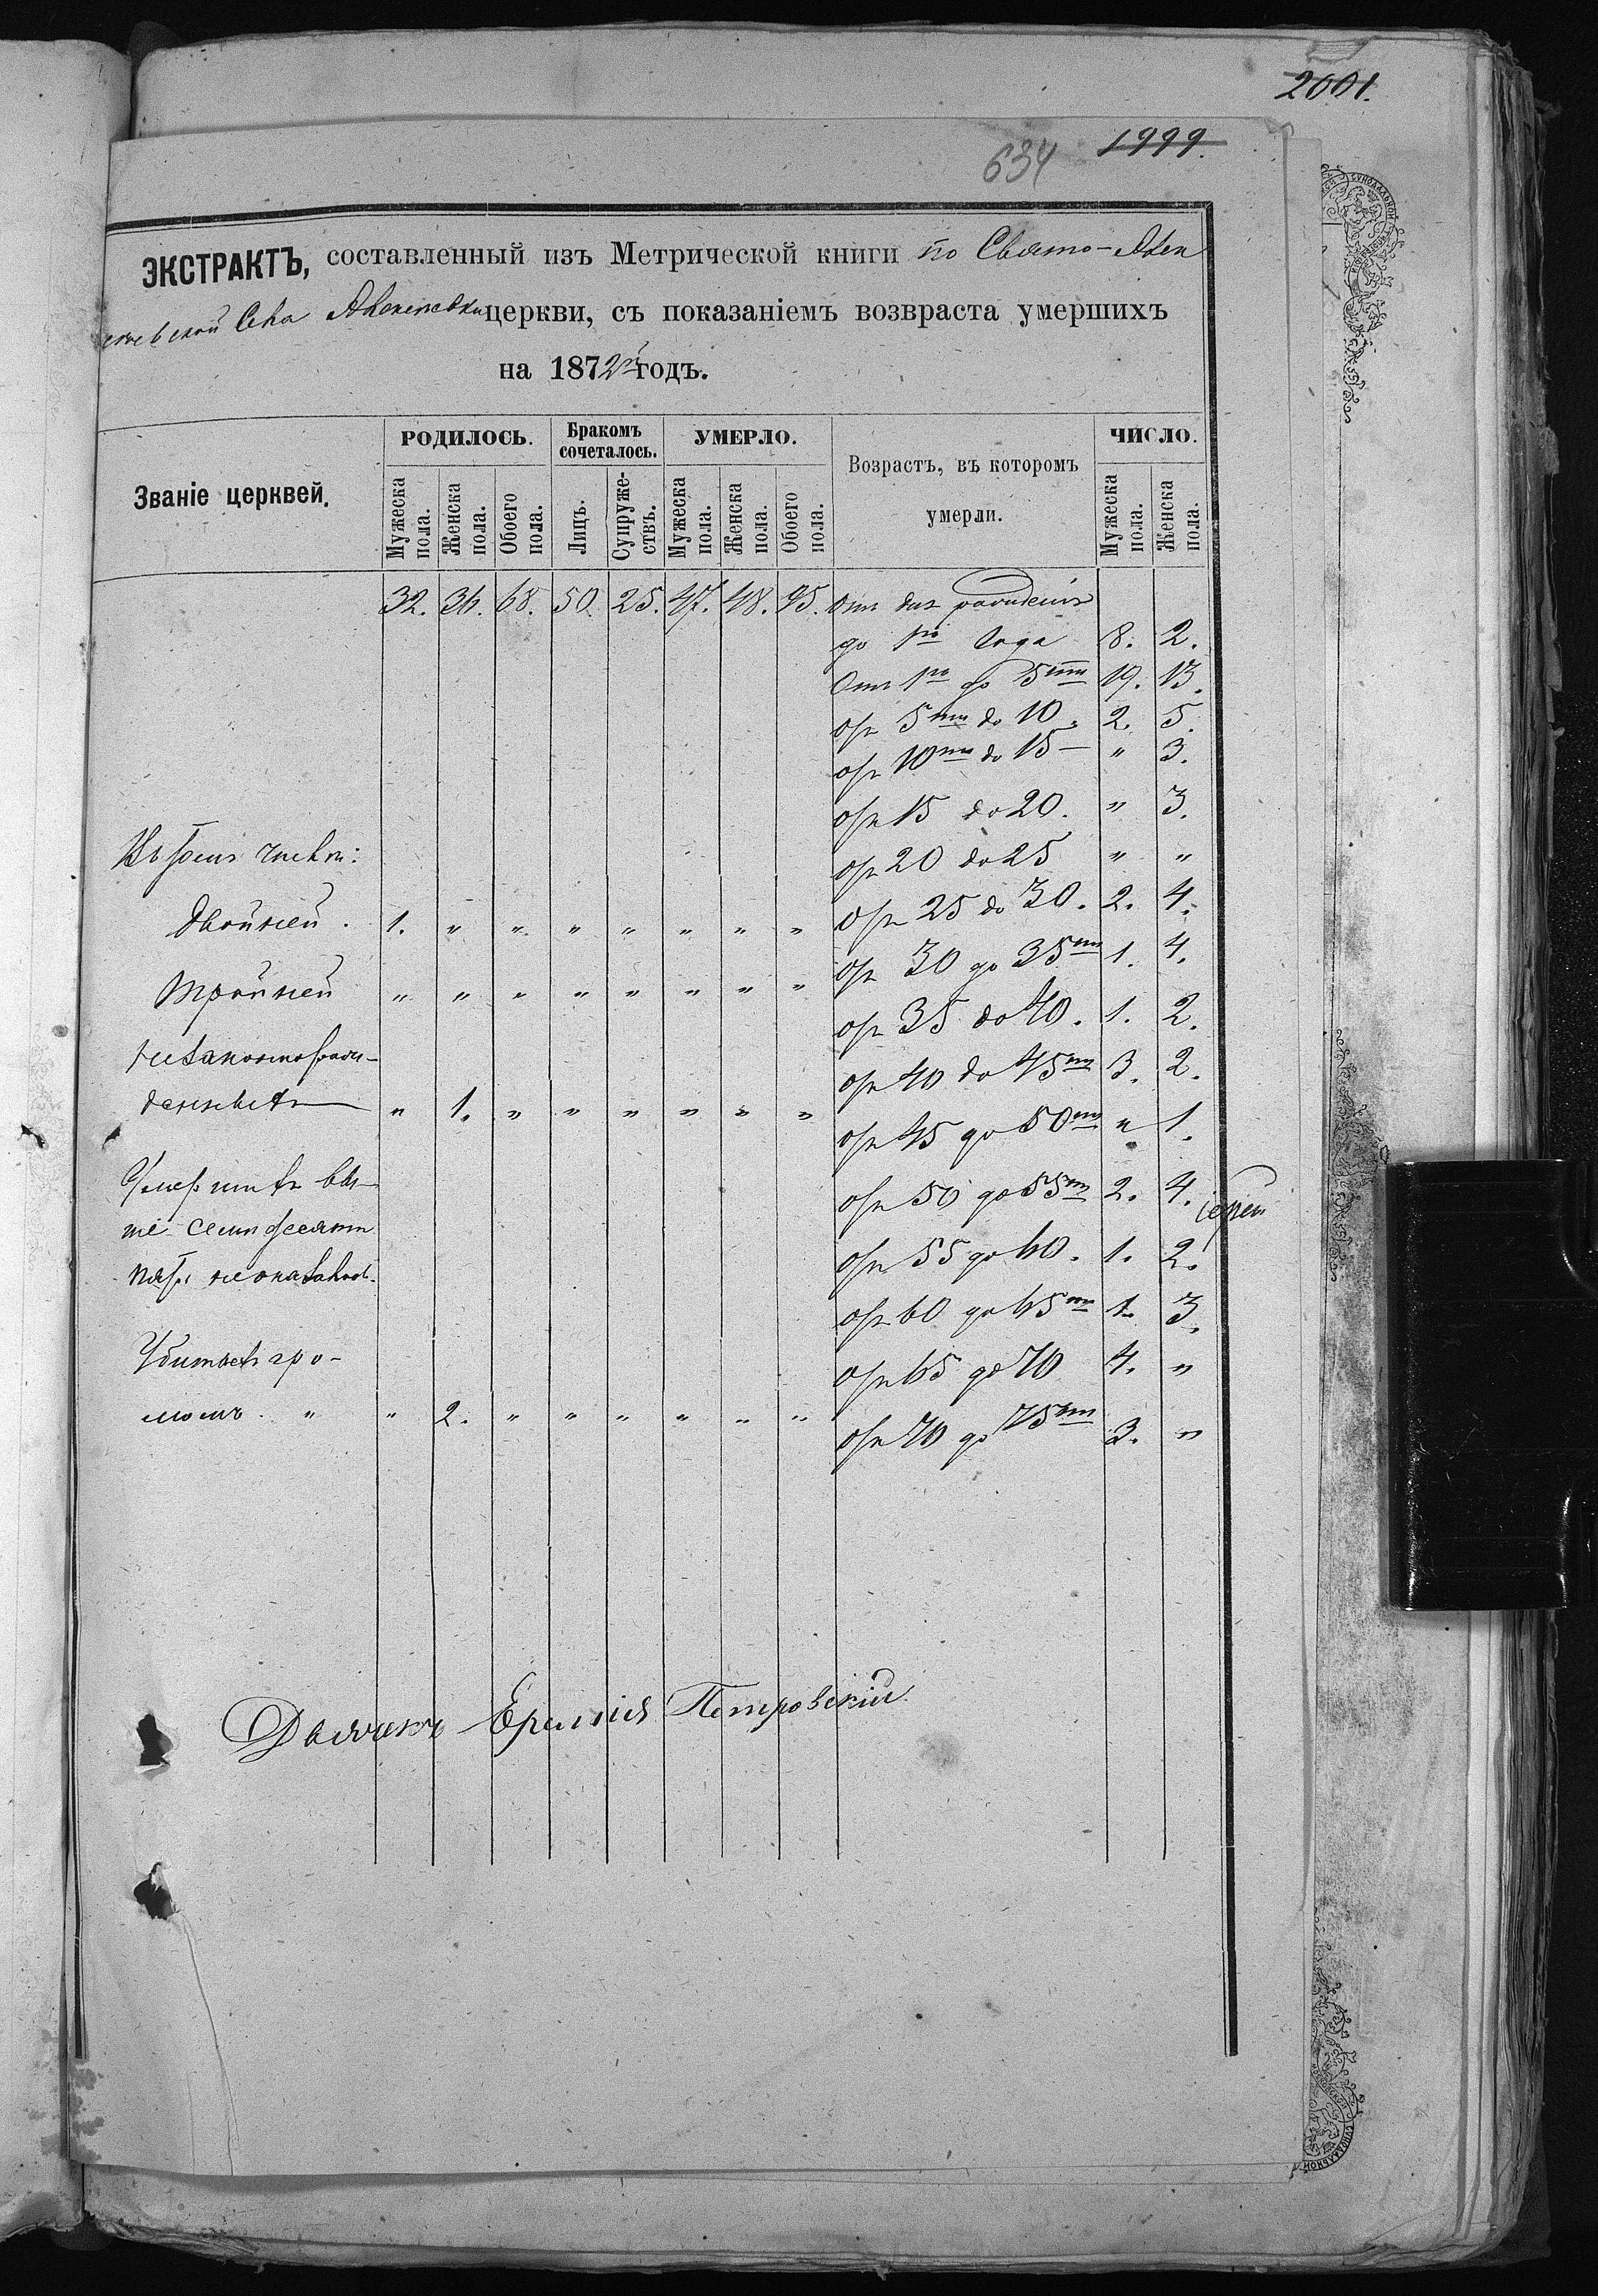 2001.
634 1999.
ЭКСТРАКТЪ, составленный изъ Метрической книги по Свято-Алек
сѣевской Села Алексѣевки церкви, съ показаніемъ возвраста умершихъ
на 1872й годъ.
Званіе церквей. РОДИЛОСЬ. Бракомъ сочеталось. УМЕРЛО. Возрастъ, въ которомъ умерли. ЧИСЛО.
Мужеска пола. Женска пола. Обоего пола. Лицъ. Супруже-ствъ. Мужеска пола. Женска пола. Обоего пола. Мужеска пола. Женска пола.
32. 36. 68. 50. 25. 47. 48. 95. Отъ дня рожденія
до 1го года 8. 2.
Отъ 1го до 5ти 19. 13.
отъ 5ти до 10. 2. 5.
отъ 10ти до 15 — „ 3.
отъ 15 до 20. „ 3.
Въ томъ числѣ:
отъ 20 до 25 „ „
двойней. 1. „ „ „ „ „ „ „ отъ 25 до 30. 2. 4.
тройней „ „ „ „ „ „ „ „ отъ 30 до 35ти 1. 4.
отъ 35 до 40. 1. 2.
незаконорож-
отъ 40 до 45ти 3. 2.
денныхъ „ 1. „ „ „ „ „ „
отъ 45 до 50ти „ 1.
Умершихъ вы-
отъ 50 до 55ти 2. 4.
ше семидесяти
отъ 55 до 60. 1. 2.
пяти не оказалось.
отъ 60 до 65ти 1. 3.
Убитыхъ гро-
отъ 65 до 70 4. „
момъ. „ „ 2. „ „ „ „ „ „
отъ 70 до 75ти 3. „
Дьячекъ Еремія Петровскій